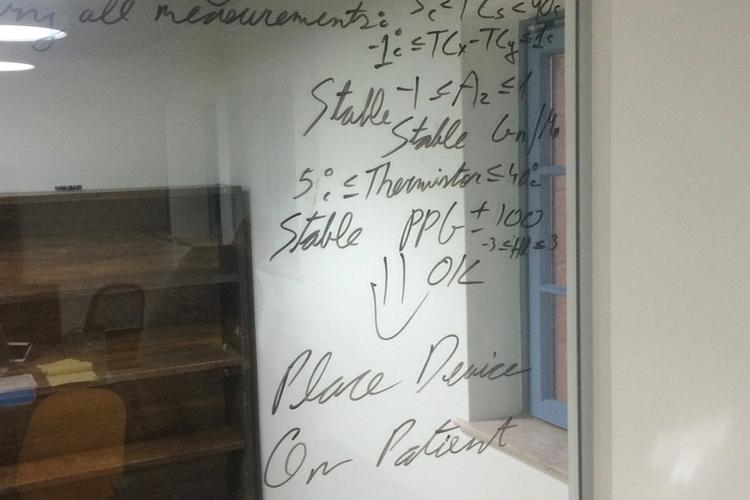 all measurements:
-1°c ≤ TCx-TCy ≤ 1°c
Stable -1 ≤ Az ≤ 1
Stable
5°c ≤ Thermistor ≤ 40°c
Stable PPG ± 100
-3 ≤ HR ≤ 3
OK
Place Device
On Patient